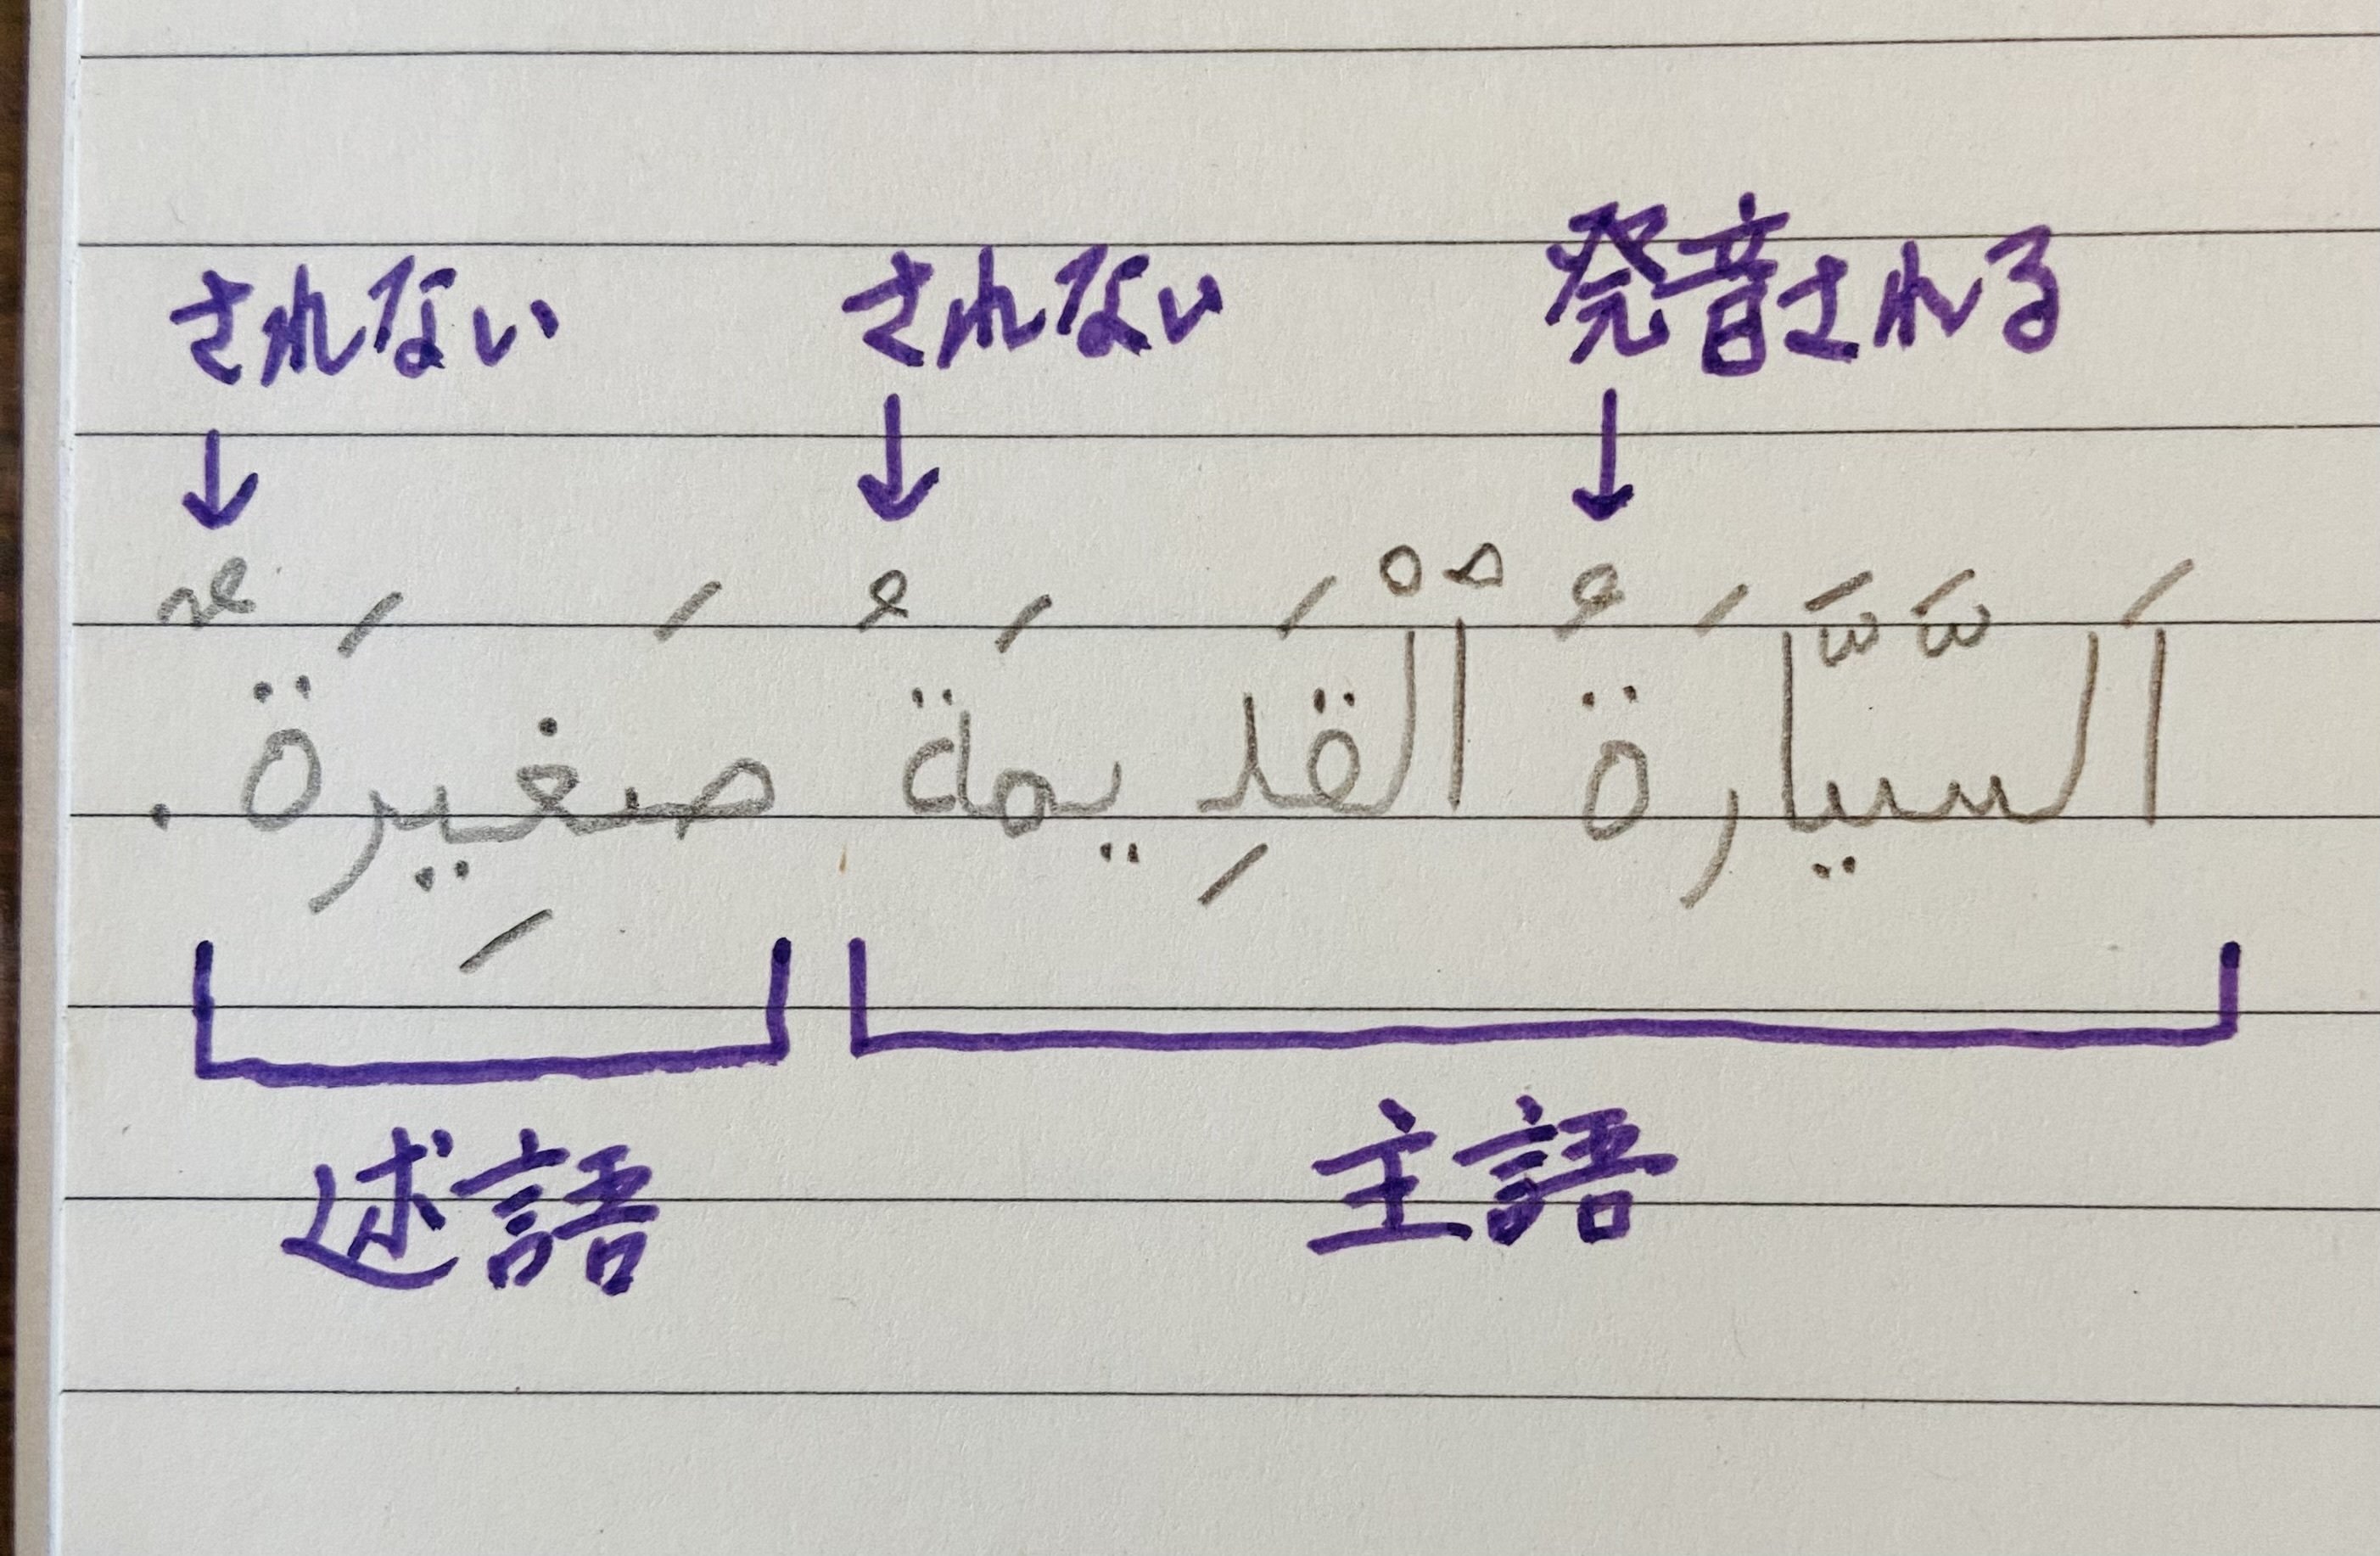 されない されない 発音される
اَلسَّيَّارَةُ ٱلْقَدِيمَةُ صَغِيرَةٌ .
述語 主語